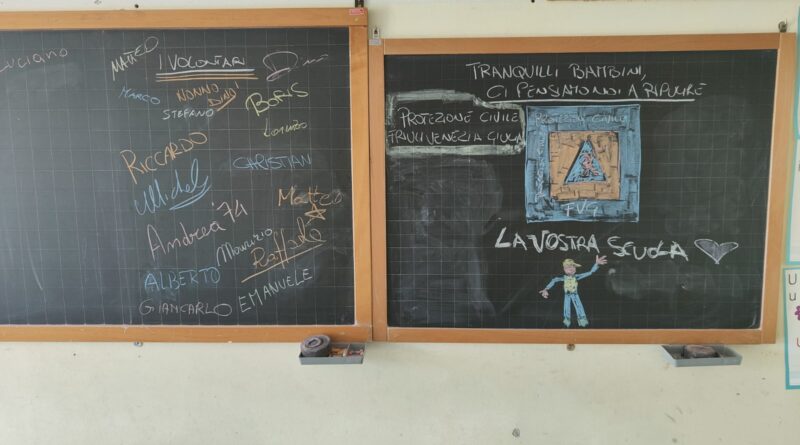 Luciano
MATTEO
I VOLONTARI
MARCO
NONNO
DINO
STEFANO
BORIS
Lorenzo
RICCARDO
CHRISTIAN
Michel
Matteo
Andrea '74
Maurizio
Raffaele
ALBERTO
EMANUELE
GIANCARLO
TRANQUILLI BAMBINI,
CI PENSIAMO NOI A RIPULIRE
PROTEZIONE CIVILE
FRIULI VENEZIA GIULIA
PROTEZIONE CIVILE
FVG
LA VOSTRA SCUOLA